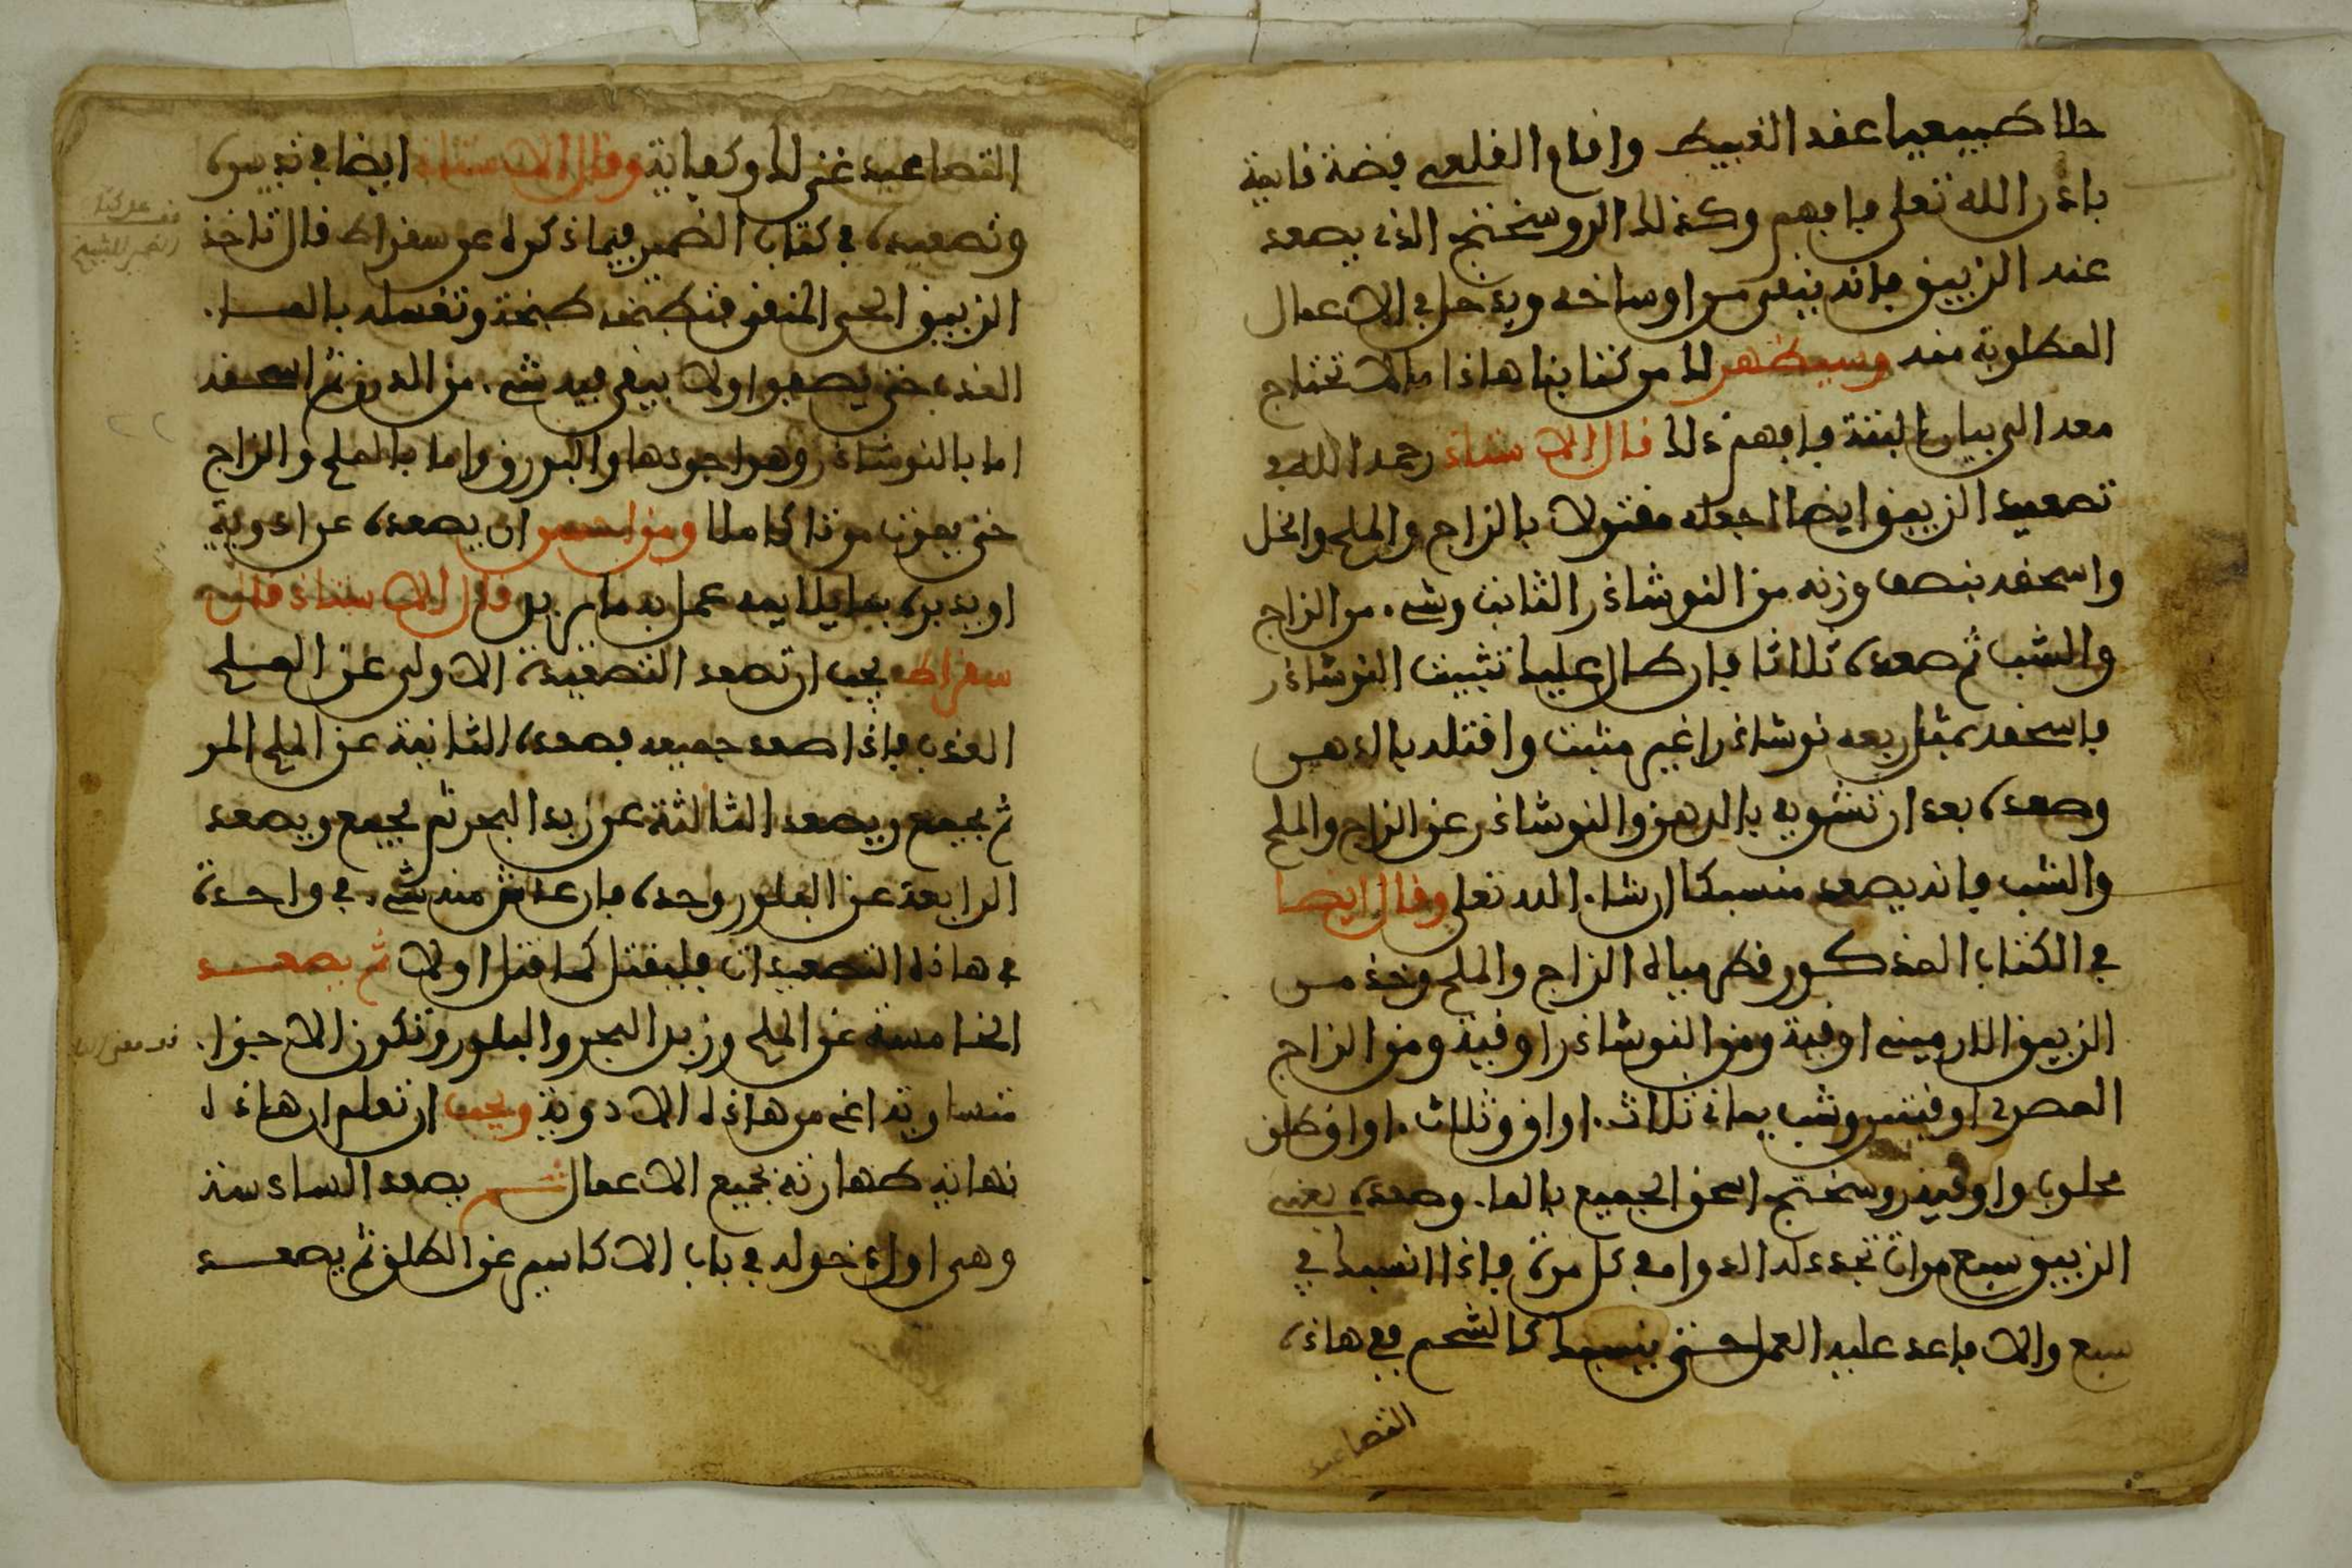 حلا طبيعيا عقد الغبيط واقام القلعي فضة قايمة
باذن الله تعلى فافهم وكذلك الروسختج الذي يصعد
عنه الزيبق فانه ينقى من اوساخه ويدخل في الاعمال
المطلوبة منه وسيظهر لك من كتابنا هاذا ما لا تحتاج
معه الى بيان البتة فافهم ذلك قال الاستاذ رحمه الله في
تصعيد الزيبق ايضا اجعله مقتولا بالزاج والملح والخل
واسحقه بنصف وزنه من النوشاذر الثابت وشيء من الزاج
والشب ثم صعده ثلاثا فان طال عليك تثبيت النوشاذر
فاسحقه بمثل ربعه نوشاذرا غير مثبت واقتله بالدهن
وصعده بعد ان تشويه بالدهن والنوشاذر عن الزاج والملح
والشب فانه يصعد منسبكا ان شاء الله تعلى وقال ايضا
في الكتاب المذكور قطر مياه الزاج والملح وخذ من
الزيبق الارميني اوقية ومن النوشاذر اوقية ومن الزاج
المصري اوقيتين وشب يماني ثلاث اواق وثلاث اواق طلق
محلوب واوقية روسختج اسحق الجميع بالماء وصعده يعني
الزيبق سبع مرات تجدد له الدوا في كل مرة فاذا انسبك في
سبع والا فاعد عليه العمل حتى ينسبك كالشحم ففي هاذه
التصاعيد
التصاعيد غنى لك وكفاية وقال الاستاذ ايضا في تدبيره
وتصعيده في كتاب الضمير فيما ذكره عن سقراط قال تاخذ
الزيبق الحي المنقى فتطبخه طبخة وتغسله بالماء
العذب حتى يصفوا ولا يبقى فيه شيء من الدرن ثم اسحقه
اما بالنوشاذر وهو اجودها والبورق واما بالملح والزاج
حتى يموت موتا كاملا ومن احسن ان يصعده عن ادوية
او يدبره بما يلايمه عمل به ما يريد قال الاستاذ قال
سقراط يجب ان تصعد التصعيدة الاولى عن الملح
العذب فاذا صعد جميعه فصعده الثانية عن الملح المر
ثم يجمع ويصعد الثالثة عن زبد البحر ثم يجمع ويصعد
الرابعة عن البلور وحده فان عاش منه شيء في واحدة
في هاذه التصعيدات فليقتل كما قتل اولا ثم يصعد
الخامسة عن الملح وزبد البحر والبلور وتكون الاجزاء
متساوية اعني من هاذه الادوية ويجب ان تعلم ان هاذه
نهاية طهارته لجميع الاعمال ثم يصعد السادسة
وهي اول دخوله في باب الاكاسير عن الطلق ثم يصعد